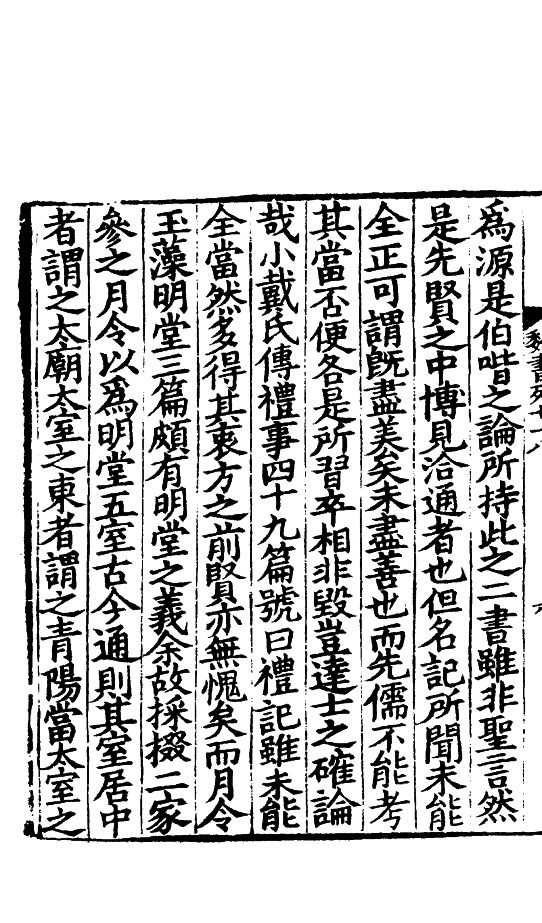 爲源是伯喈之論所持此之二書雖非聖言然
是先賢之中博見洽通者也但名記所聞未能
全正可謂旣盡美矣未盡善也而先儒不能考
其當否便各是所習卒相非毀豈達士之確論
哉小戴氏傳禮事四十九篇號曰禮記雖未能
全當然多得其衷方之前賢亦無愧矣而月令
玉藻明堂三篇頗有明堂之義余故採掇二家
參之月令以爲明堂五室古今通則其室居中
者謂之太廟太室之東者謂之青陽當太室之